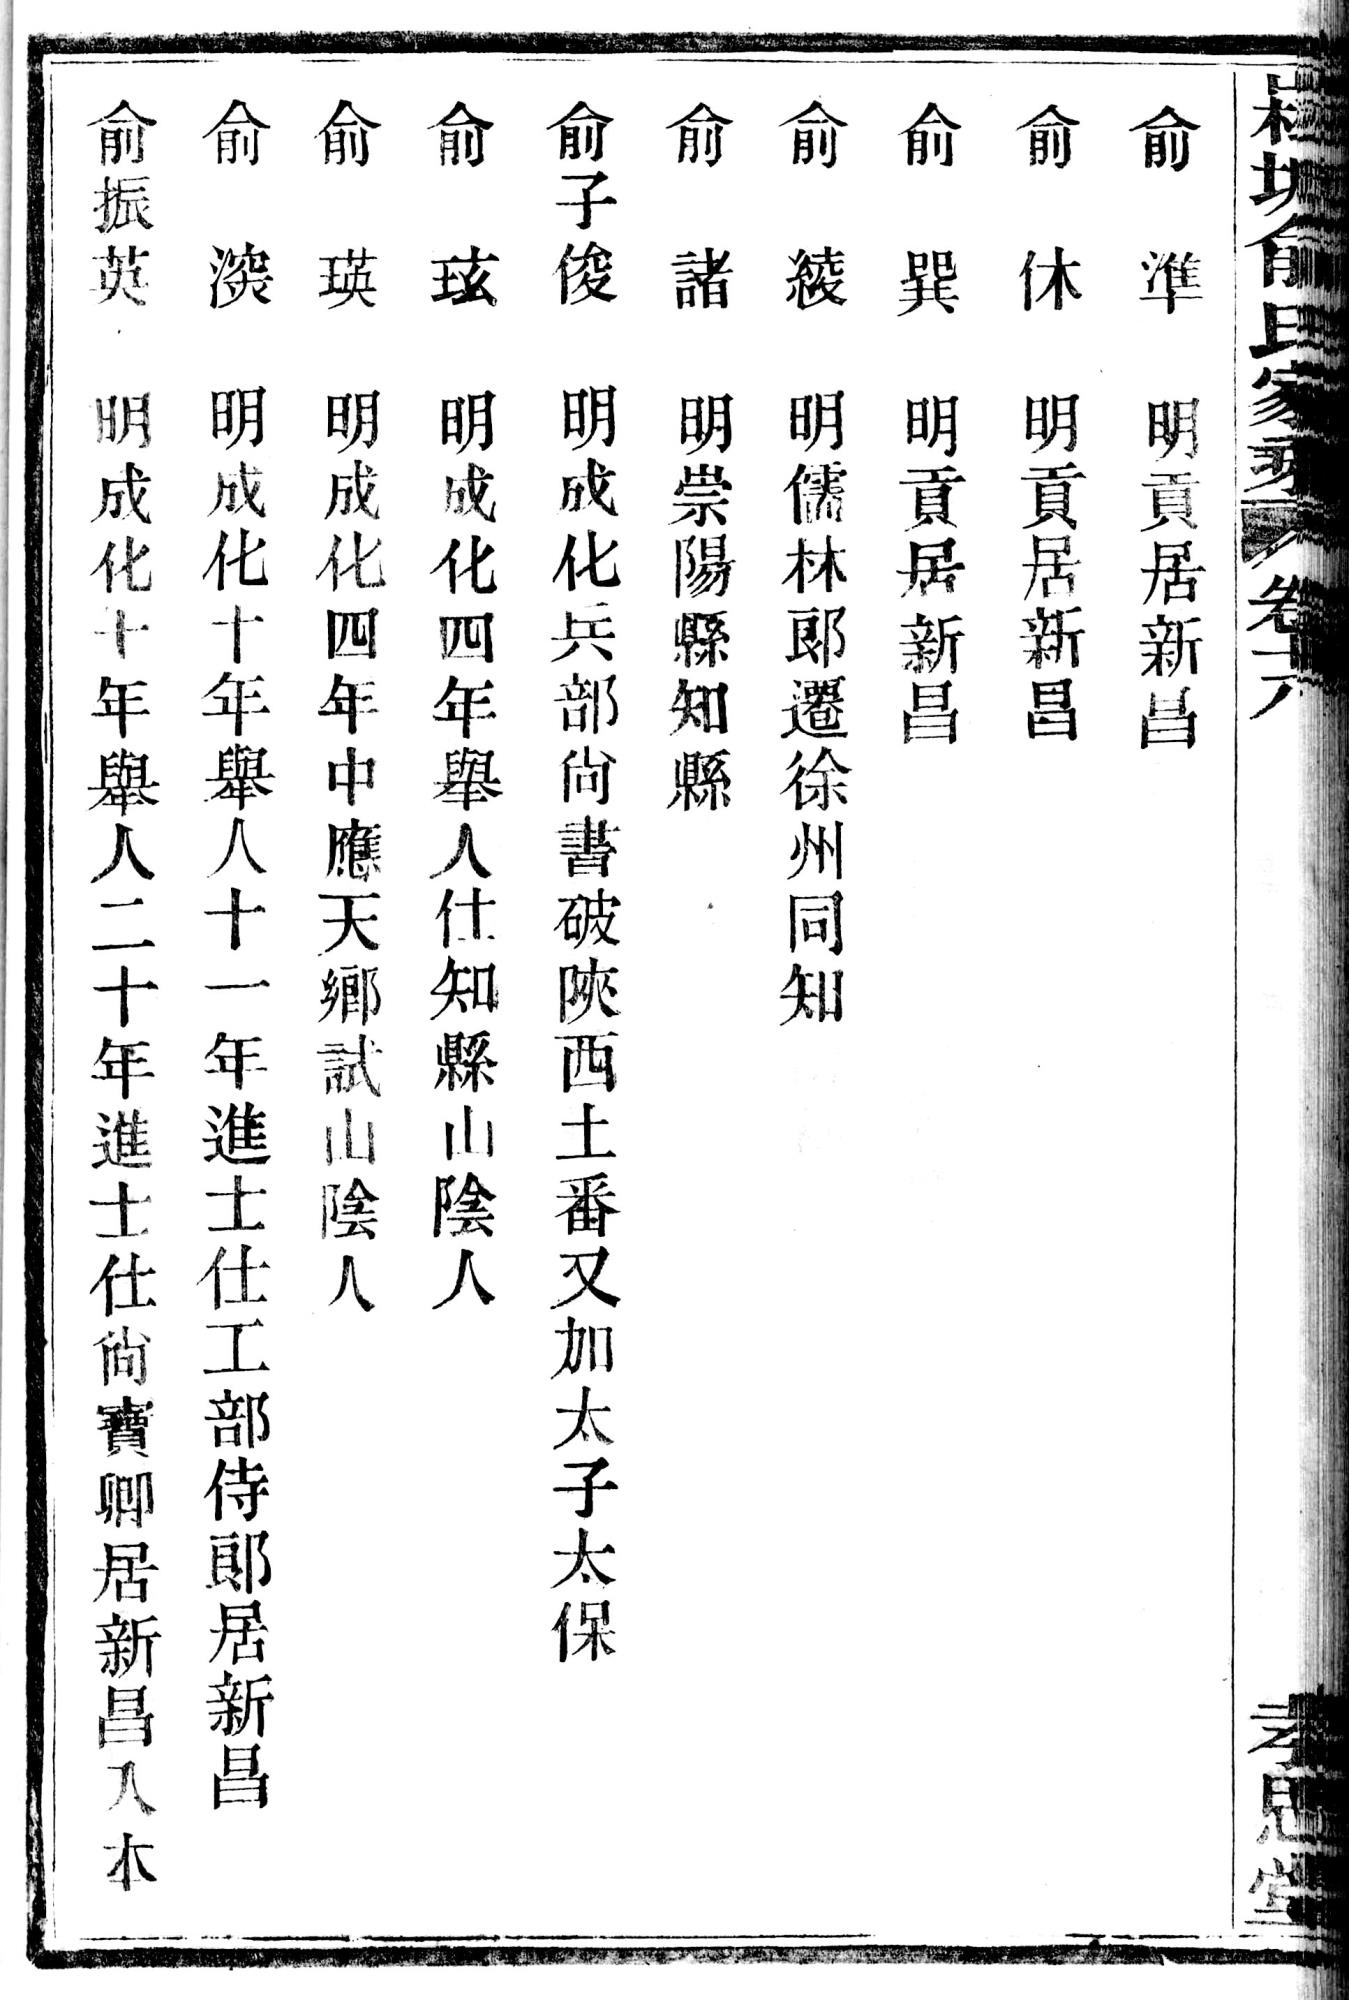 俞氏家乘 卷十六 孝思堂
俞　準　明貢居新昌
俞　休　明貢居新昌
俞　巽　明貢居新昌
俞　綾　明儒林郎遷徐州同知
俞　諸　明崇陽縣知縣
俞子俊　明成化兵部尚書破陝西土番又加太子太保
俞　玹　明成化四年舉人仕知縣山陰人
俞　瑛　明成化四年中應天鄉試山陰人
俞　　明成化十年舉人十一年進士仕工部侍郎居新昌
俞振英　明成化十年舉人二十年進士仕尚寶卿居新昌入本